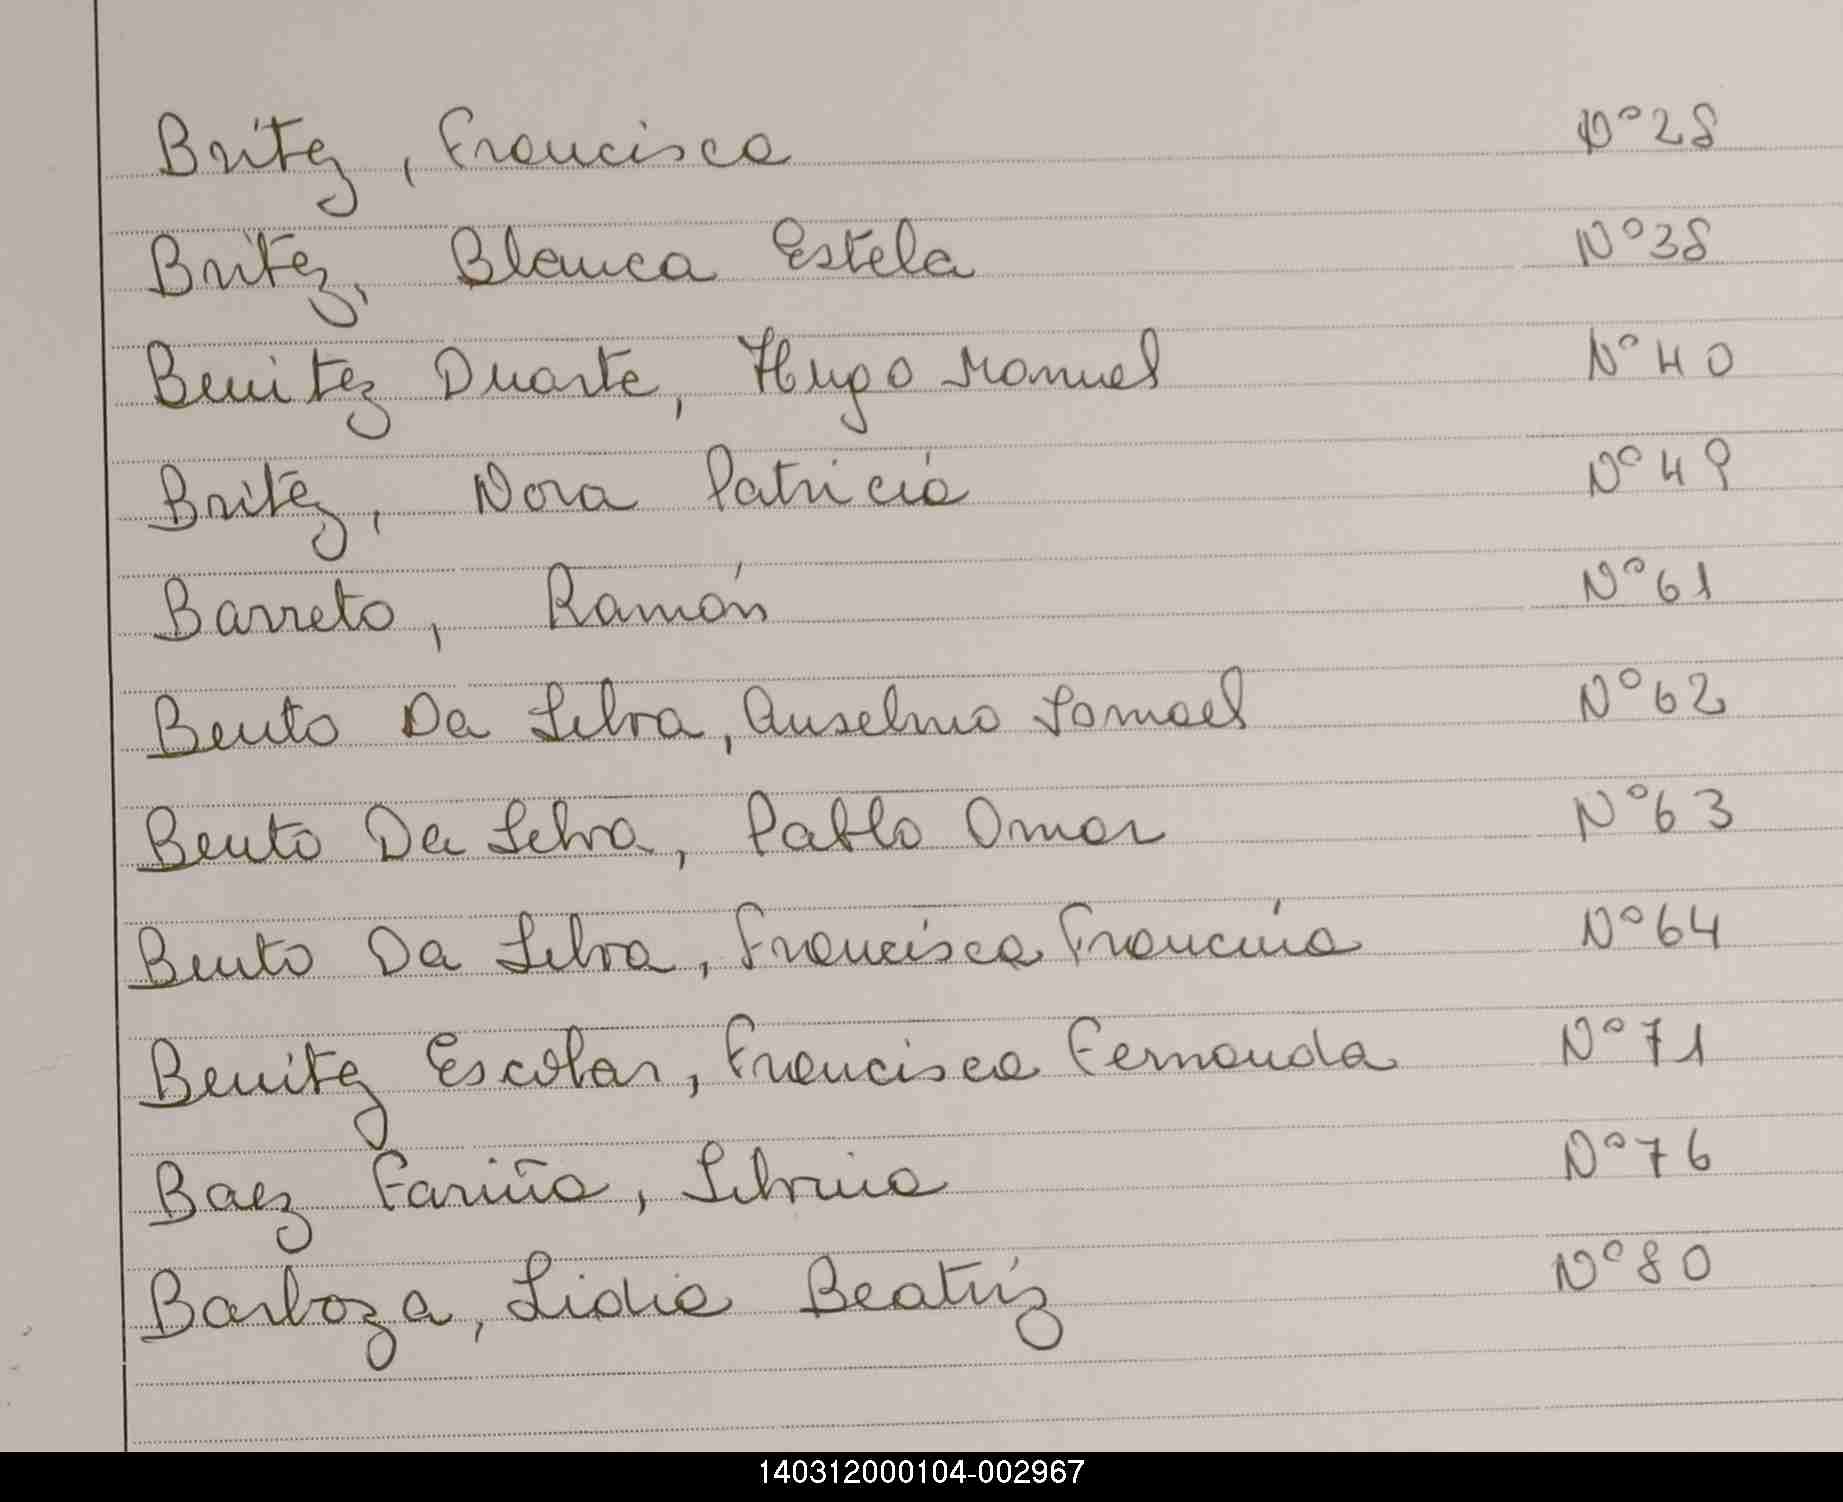 Britez, Francisca N°28
Britez, Blanca Estela N°38
Benitez Duarte, Hugo Manuel N°40
Britez, Nora Patricia N°49
Barreto, Ramón N°61
Bento Da Silva, Anselmo Samael N°62
Bento Da Silva, Pablo Omar N°63
Bento Da Silva, Francisca Francina N°64
Benitez Escobar, Francisca Fernanda N°71
Baez Fariña, Silvina N°76
Barboza, Lidia Beatriz N°80
140312000104-002967